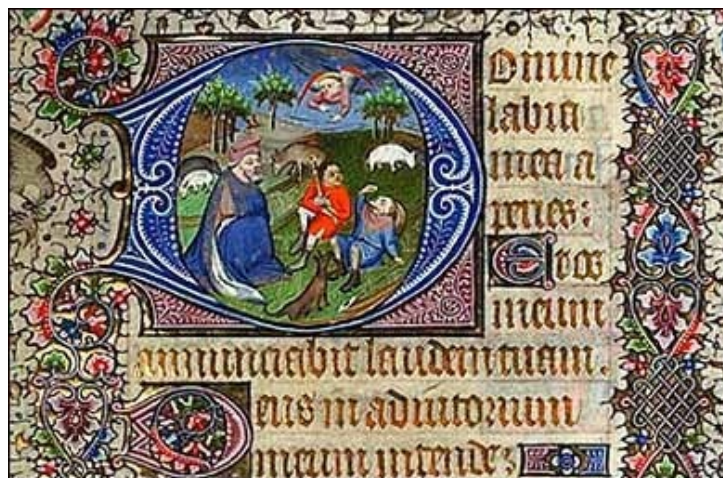 Domine
labia
mea a
peries:
Et os
meum
annunciabit laudem tuam.
Deus in adiutorium
meum intende: